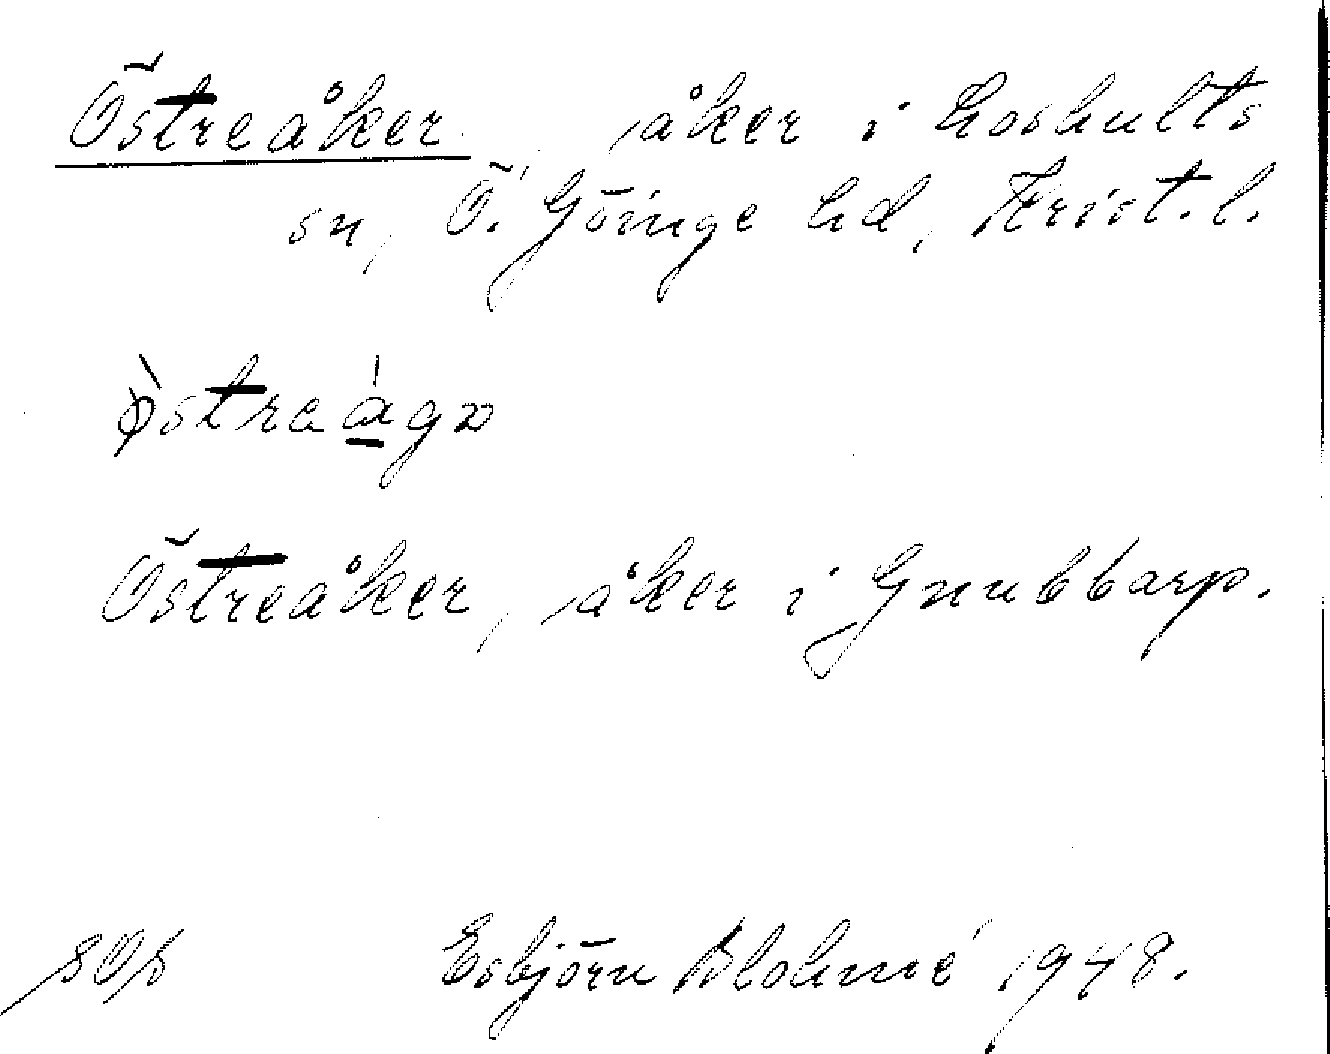 Östreåker, åker i Loshults
sn, Ö. Göinge hd, Krist. l.
östreågo
Östreåker, åker i Gnubbarp.
Esbjörn Blohmé 1948.